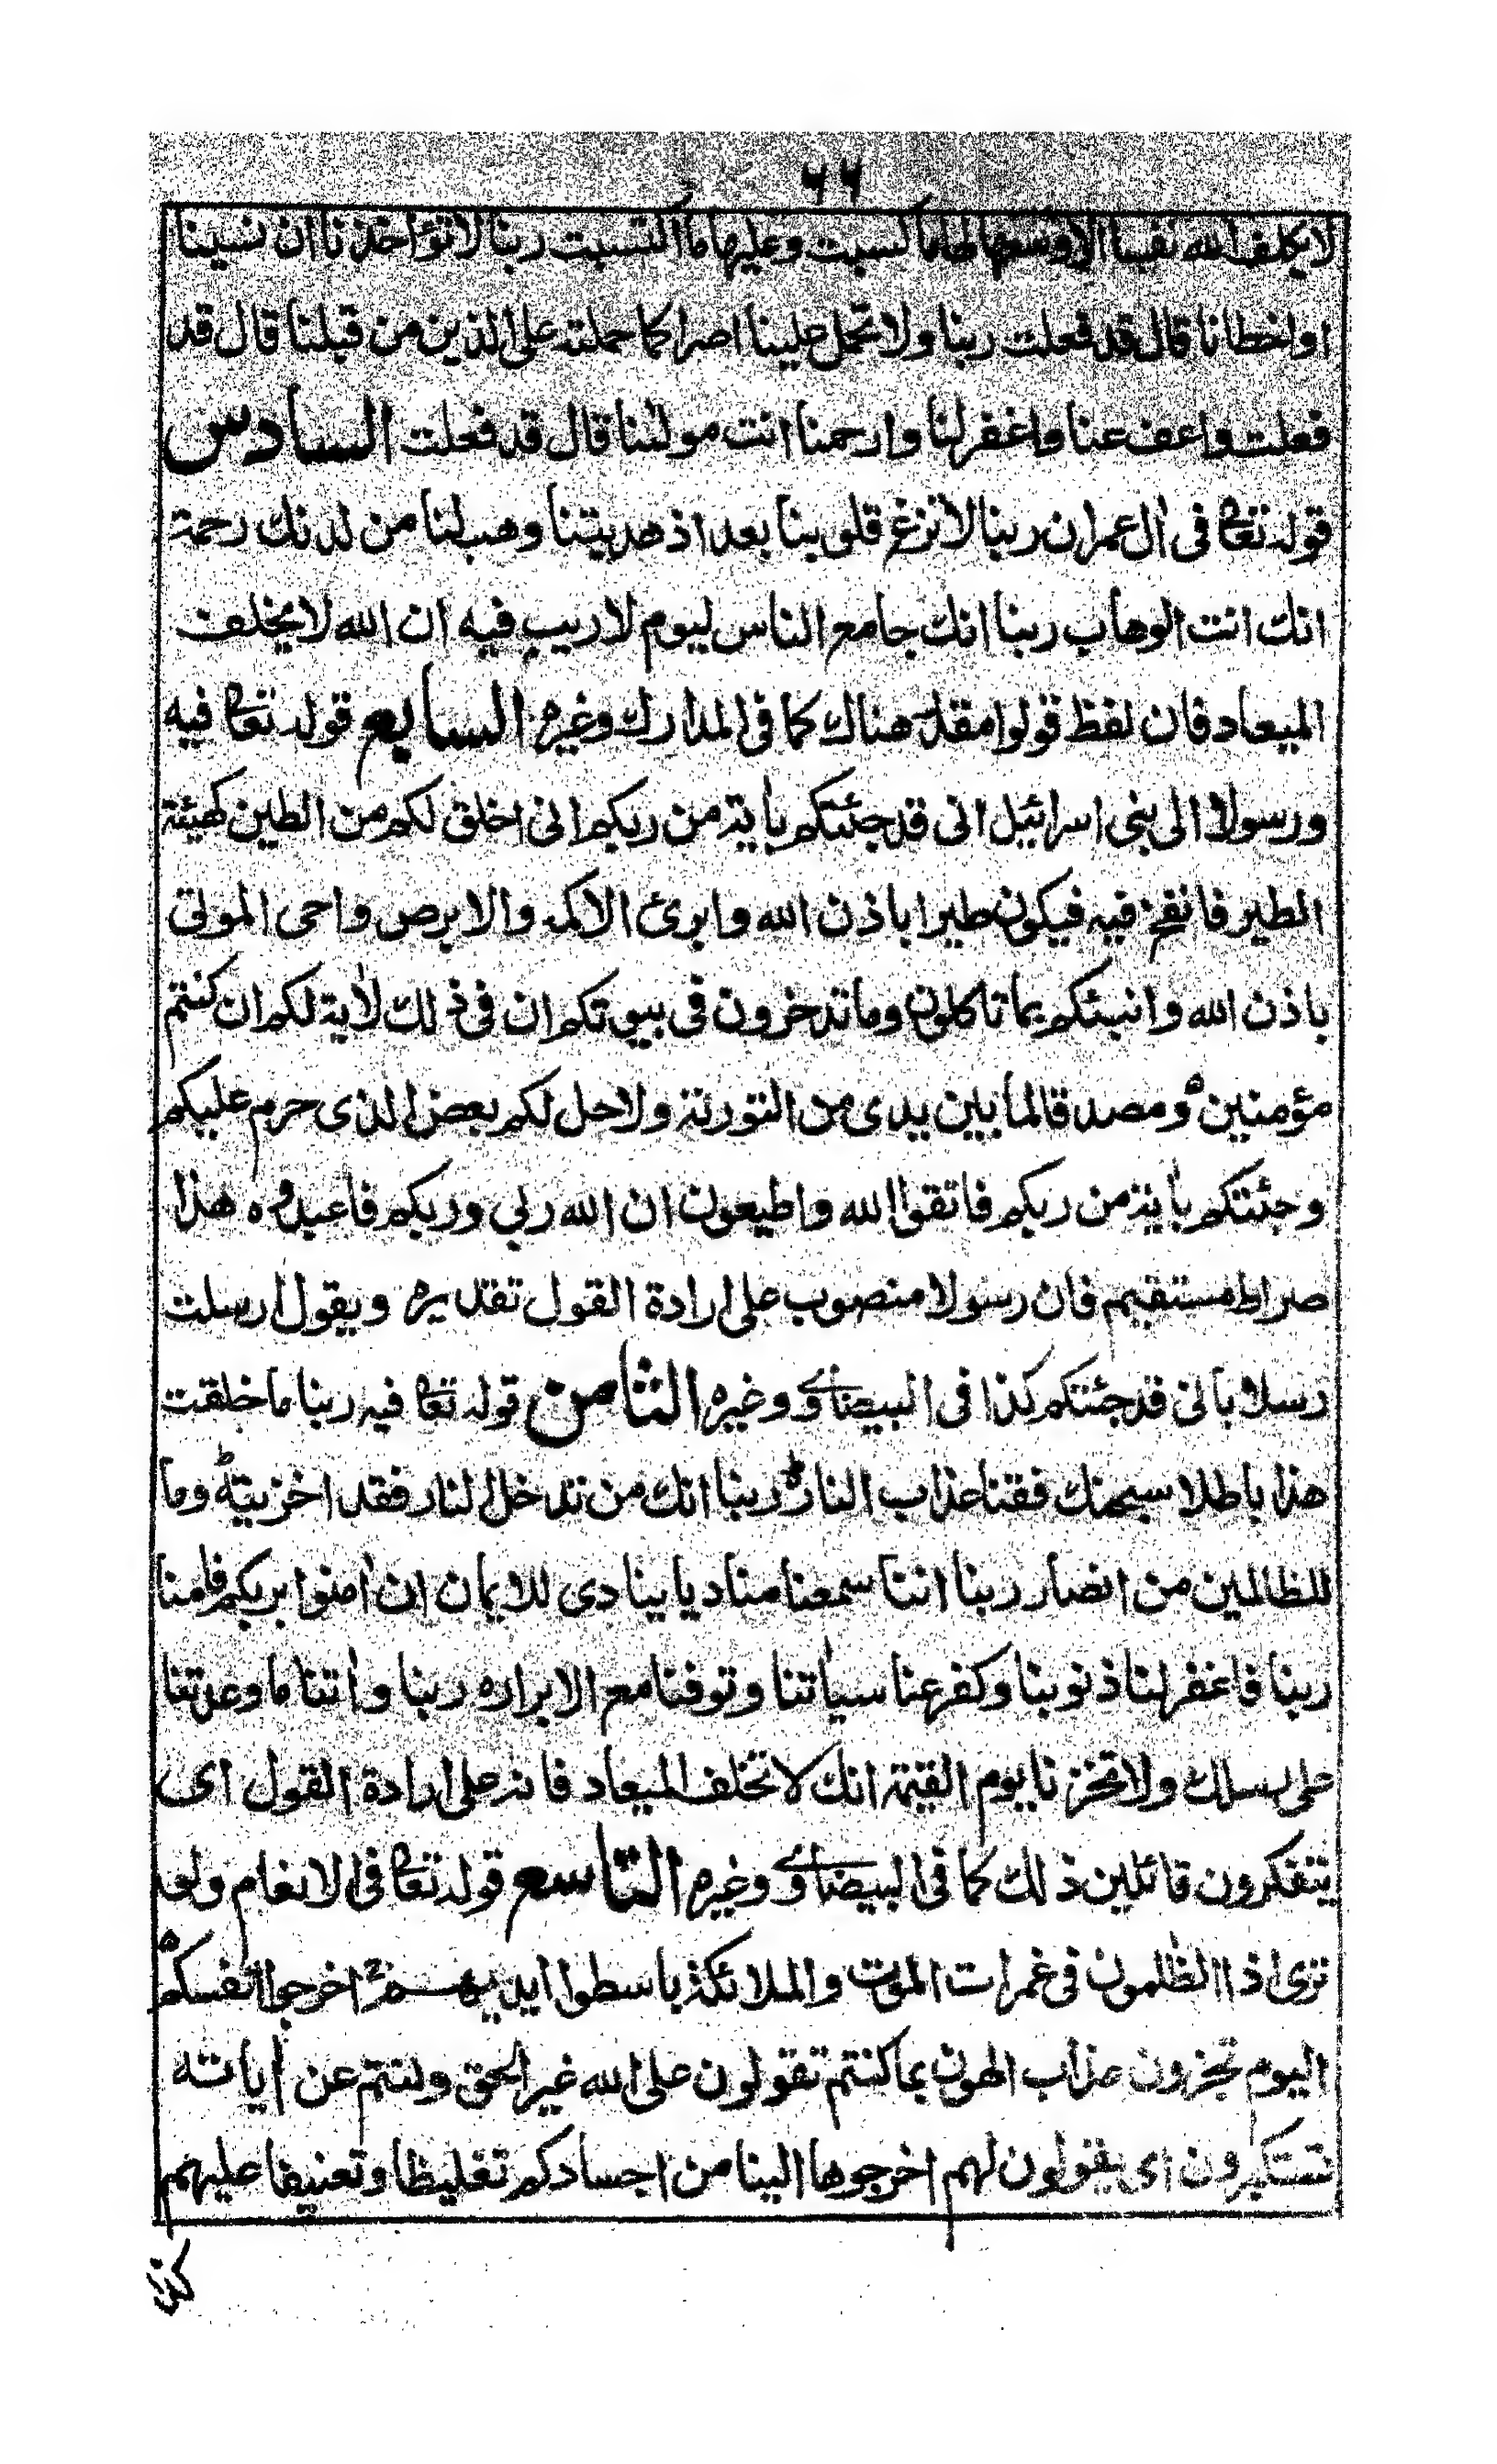 ٦٦
لا يكلف الله نفسا الا وسعها لها ما كسبت وعليها ما اكتسبت ربنا لا تؤاخذنا ان نسينا
او اخطانا قال قد فعلت ربنا ولا تحمل علينا اصرا كما حملته على الذين من قبلنا قال قد
فعلت واعف عنا واغفر لنا وارحمنا انت مولٰنا قال قد فعلت السادس
قوله تعا فى اٰل عمران ربنا لا تزغ قلوبنا بعد اذ هديتنا وهب لنا من لدنك رحمة
انك انت الوهاب ربنا انك جامع الناس ليوم لا ريب فيه ان الله لا يخلف
الميعاد فان لفظ قولوا مقدر هناك كما فى المدارك وغيره السابع قوله تعا فيه
ورسولا الى بنى اسرائيل انى قد جئتكم باٰية من ربكم انى اخلق لكم من الطين كهيئة
الطير فانفخ فيه فيكون طيرا باذن الله وابرئ الاكمه والابرص واحى الموتى
باذن الله وانبئكم بما تاكلون وما تدخرون فى بيوتكم ان فى ذلك لاٰية لكم ان كنتم
مؤمنين ومصدقا لما بين يدى من التورىة ولاحل لكم بعض الذى حرم عليكم
وجئتكم باٰية من ربكم فاتقوا الله واطيعون ان الله ربى وربكم فاعبدوه هذا
صراط مستقيم فان رسولا منصوب على ارادة القول تقديره ويقول ارسلت
رسلا بانى قد جئتكم كذا فى البيضاوے وغيره الثامن قوله تعا فيه ربنا ما خلقت
هذا باطلا سبحنك فقنا عذاب النار ربنا انك من تدخل النار فقد اخزيته وما
للظالمين من انصار ربنا اننا سمعنا مناديا ينادى للايمان ان اٰمنوا بربكم فاٰمنا
ربنا فاغفر لنا ذنوبنا وكفر عنا سياٰتنا وتوفنا مع الابراره ربنا واٰتنا ما وعدتنا
على رسلك ولا تخزنا يوم القيٰمة انك لا تخلف الميعاد فانه على ارادة القول اى
يتفكرون قائلين ذلك كما فى البيضاوے وغيره التاسع قوله تعا فى الانعام ولو
ترى اذ الظٰلمون فى غمرات الموت والملائكة باسطوا ايديهم اخرجوا انفسكم
اليوم تجزون عذاب الهون بما كنتم تقولون على الله غير الحق وكنتم عن اٰياته
تستكبرون اى يقولون لهم اخرجوها الينا من اجسادكم تغليظا وتعنيفا عليهم
كذا